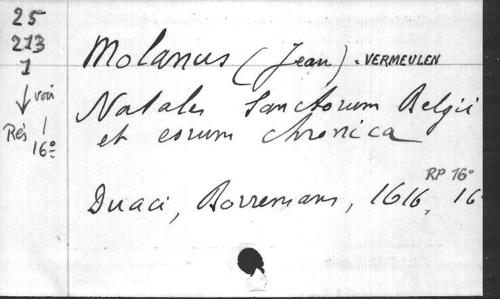 25
273
1
voir
Rés 1
16º
Molanus (Jean) - VERMEULEN
Natales Sanctorum Belgii
et eorum chronica
RP 16º
Duaci, Borremans, 1616, 16